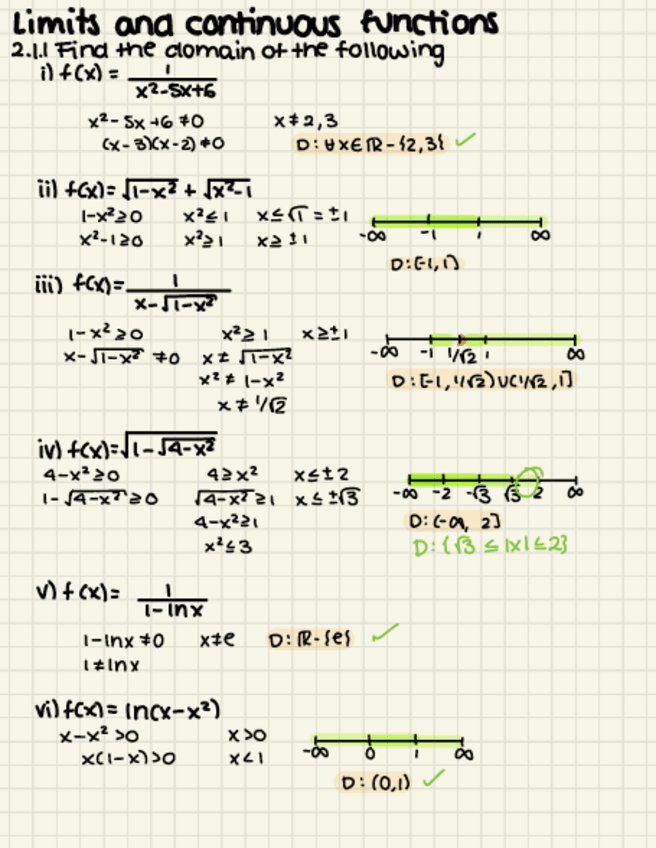 Limits and continuous functions
2.1.1 Find the domain of the following
i) f(x) = 1/(x²-5x+6)
x²-5x+6≠0 x≠2,3
(x-3)(x-2)≠0 D: ∀x∈ℝ-{2,3} ✓
ii) f(x)=√(1-x²) + √(x²-1)
1-x²≥0 x²≤1 x≤√1=±1
x²-1≥0 x²≥1 x≥±1
-∞ -1 1 ∞
D:[-1,1]
iii) f(x)=1/(x-√(1-x²))
1-x²≥0 x²≥1 x≥±1
x-√(1-x²) ≠0 x≠√(1-x²)
-∞ -1 1/√2 1 ∞
x²≠1-x²
D:[-1,1/√2)∪(1/√2,1]
x≠1/√2
iv) f(x)=√(1-√(4-x²))
4-x²≥0 4≥x² x≤±2
1-√(4-x²)≥0 √(4-x²)≥1 x≤±√3
-∞ -2 -√3 √3 2 ∞
4-x²≥1
D:(-∞, 2]
x²≤3
D:{√3 ≤|x|≤2}
v) f(x)= 1/(1-lnx)
1-lnx≠0 x≠e D:ℝ-{e} ✓
1≠lnx
vi) f(x)=ln(x-x²)
x-x²>0 x>0
x(1-x)>0 x<1
-∞ 0 1 ∞
D:(0,1) ✓